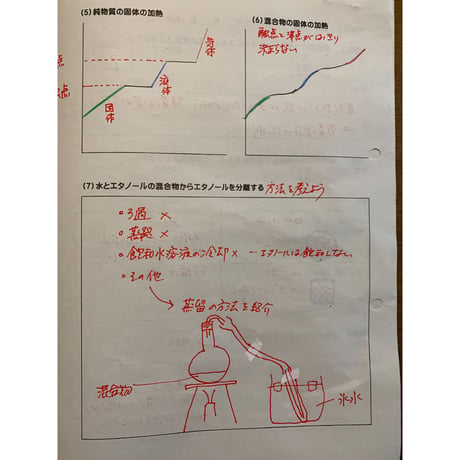 (5) 純物質の固体の加熱
(6) 混合物の固体の加熱
融点と沸点がはっきり
決まらない
気体
液体
固体
点
点
(7) 水とエタノールの混合物からエタノールを分離する 方法を考えよう
ろ過 ×
蒸発 ×
飽和水溶液の冷却 × … エタノールは飽和しない
その他
蒸留の方法を紹介
混合物
氷水